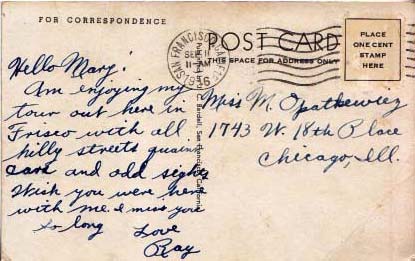 FOR CORRESPONDENCE
POST CARD
THIS SPACE FOR ADDRESS ONLY
PLACE
ONE CENT
STAMP
HERE
SAN FRANCISCO
SEP 11
11 AM
1936
Hello Marj!
Am enjoying my
tour out here in
Frisco with all
hilly streets quaint
cars and odd sights
Wish you were here
with me. I miss you
So long
Love
Ray
Miss M. Opatkewicz
1743 W. 18th Place
Chicago, Ill.